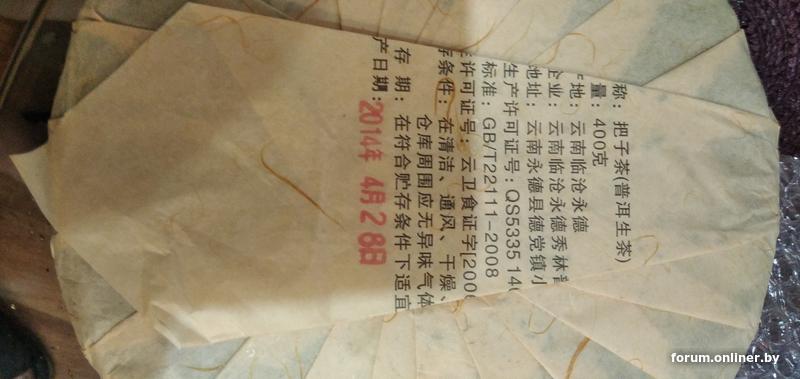 称：把子茶(普洱生茶)
量：400克
地：云南临沧永德
企业：云南临沧永德秀林普
地址：云南永德县德党镇小
生产许可证号：QS5335 14
标准：GB/T22111-2008
许可证号：云卫食证字[200
存条件：在清洁、通风、干燥、
仓库周围应无异味气体
存 期：在符合贮存条件下适宜
产日期：2014年 4月28日
forum.onliner.by